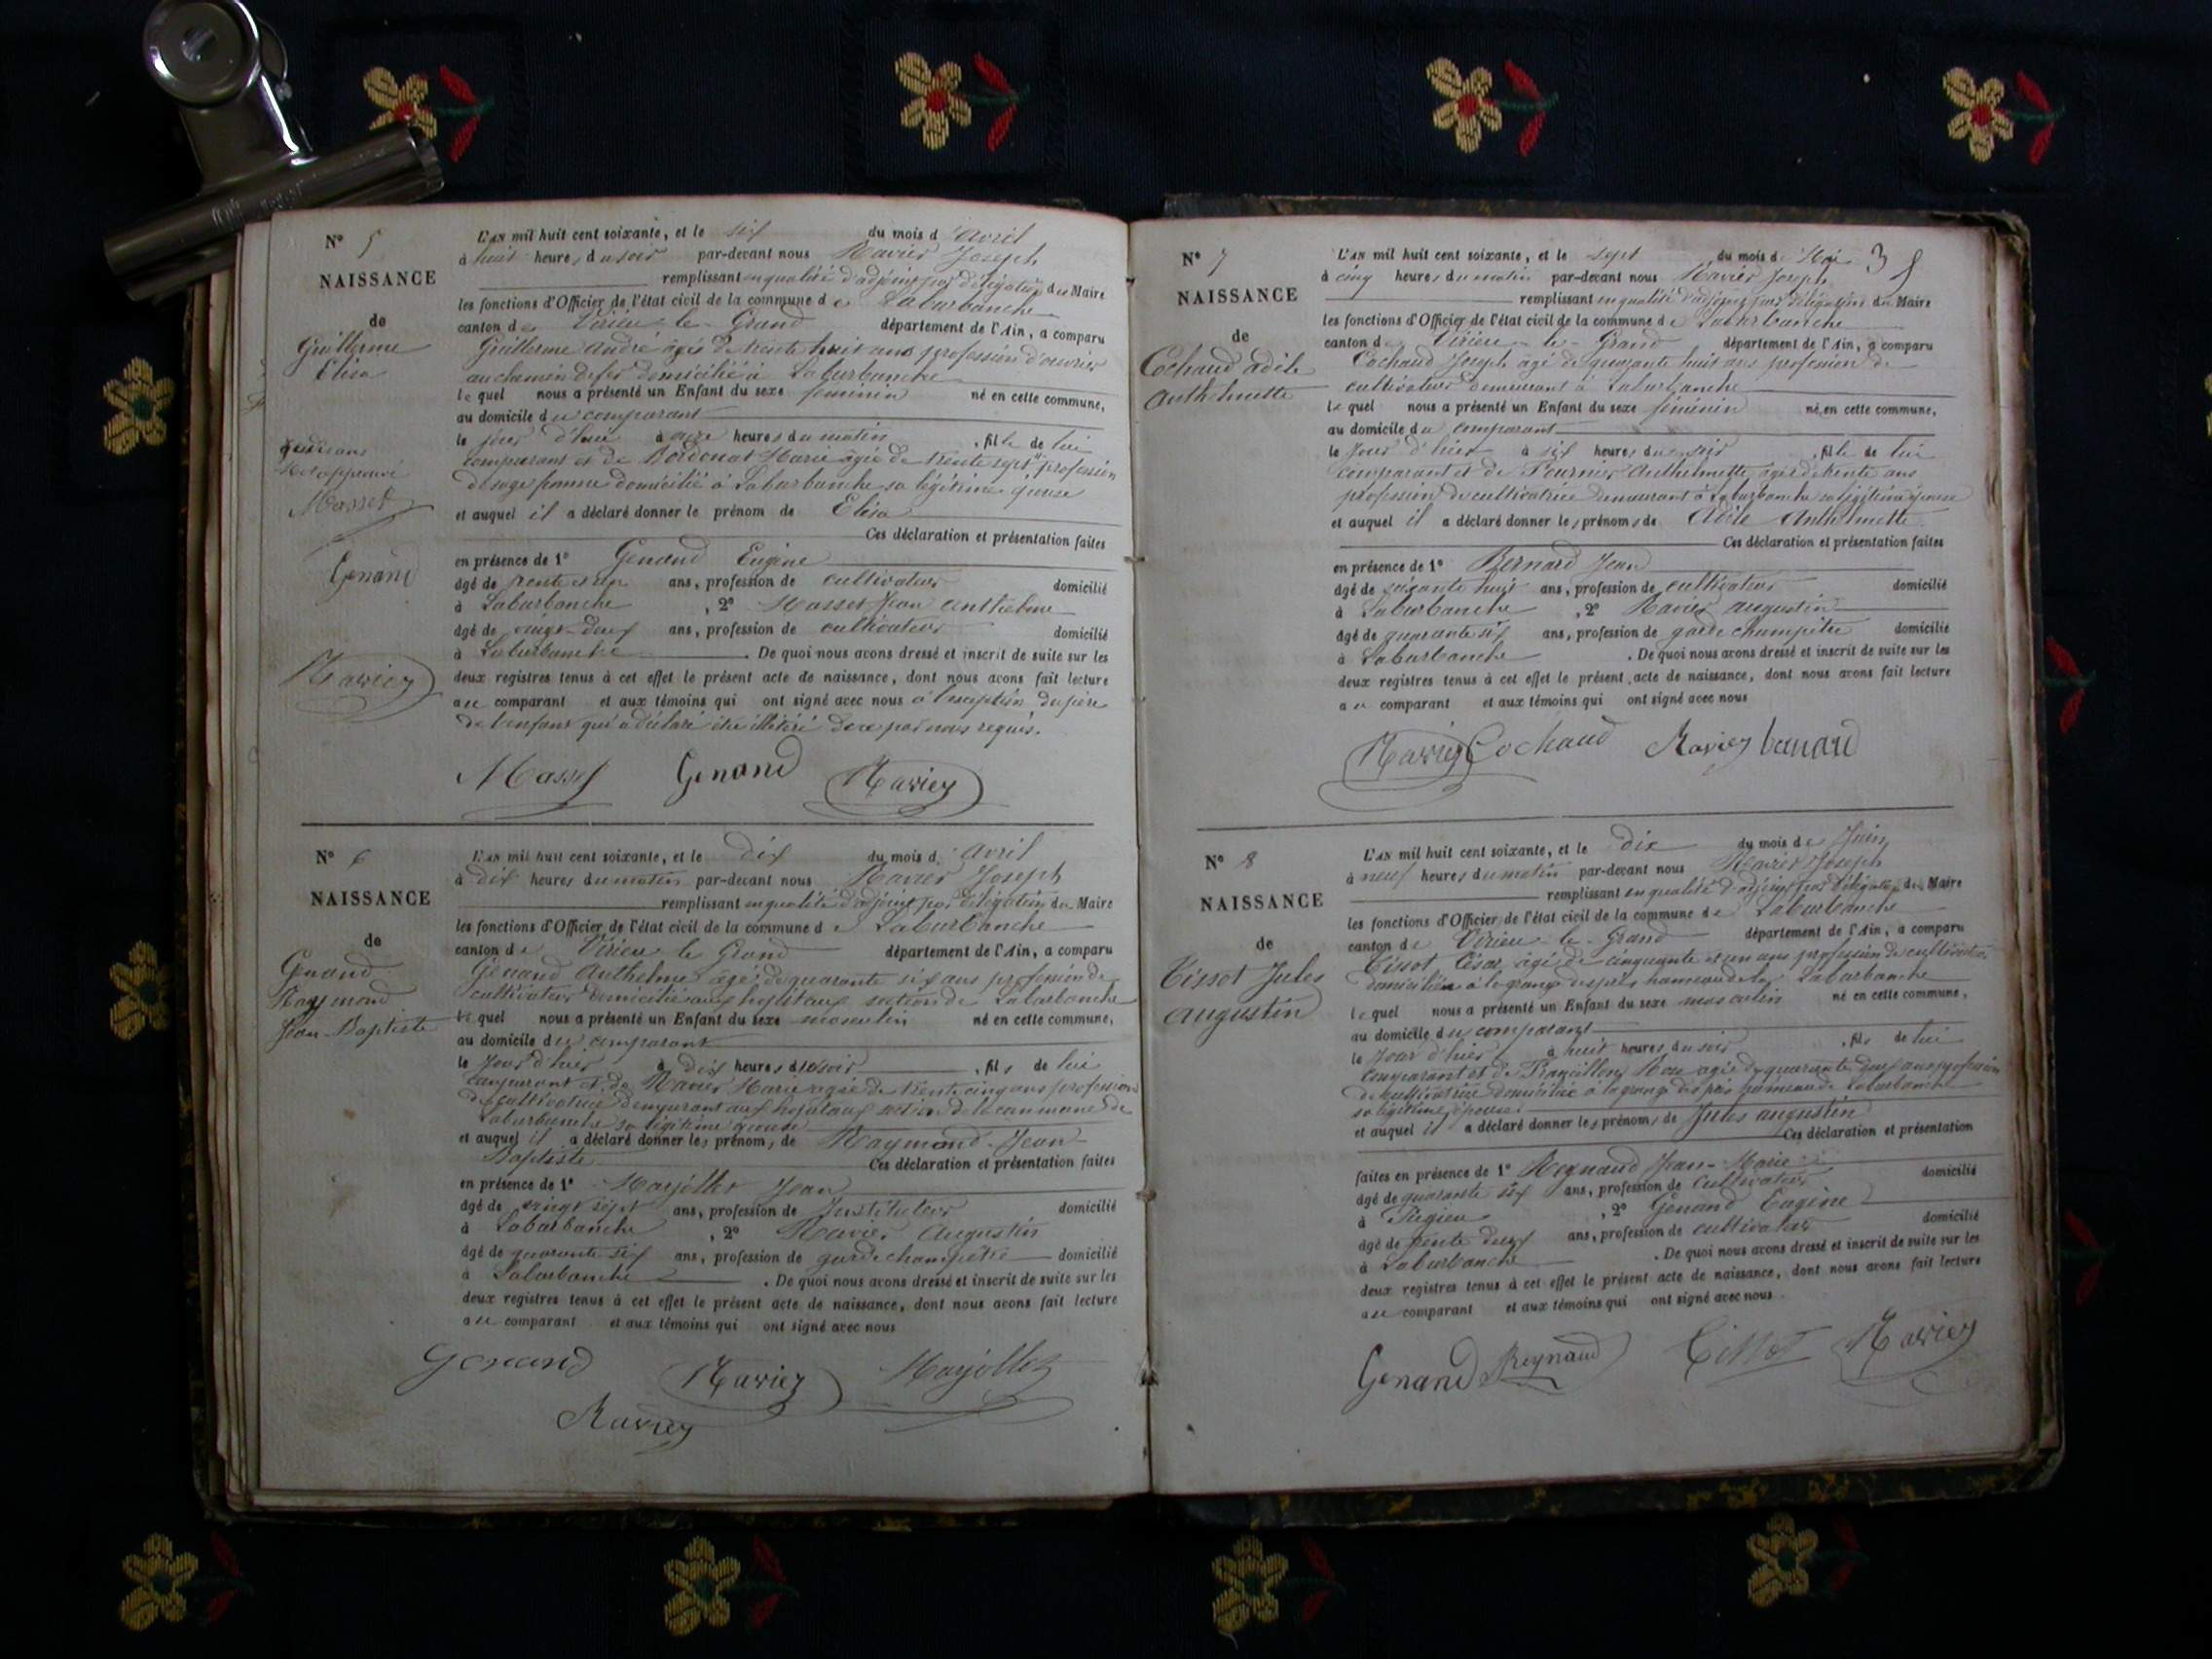 N° 5
NAISSANCE
de
Guillerme
Elisa
Masset
Genand
Ravier
L'AN mil huit cent soixante, et le six du mois d'Avril
à huit heures du soir par-devant nous Ravier Joseph
remplissant en qualité d'adjoint par délégation du Maire
les fonctions d'Officier de l'état civil de la commune de Laburbanche
canton de Virieu-le-Grand département de l'Ain, a comparu
Guillerme André âgé de trente huit ans profession d'ouvrier
au chemin de fer domicilié à Laburbanche
lequel nous a présenté un Enfant du sexe féminin né en cette commune,
au domicile du comparant
le jour d'hui à onze heures du matin, fille de lui
comparant et de Bordonat Marie âgée de trente sept profession
de sage femme domiciliée à Laburbanche sa légitime épouse
et auquel il a déclaré donner le prénom de Elisa
Ces déclaration et présentation faites
en présence de 1° Genand Eugène
âgé de trente et un ans, profession de cultivateur domicilié
à Laburbanche, 2° Masset Jean Anthelme
âgé de vingt-deux ans, profession de cultivateur domicilié
à Laburbanche. De quoi nous avons dressé et inscrit de suite sur les
deux registres tenus à cet effet le présent acte de naissance, dont nous avons fait lecture
au comparant et aux témoins qui ont signé avec nous à l'exception du père
de l'enfant qui a déclaré être illétéré de ce par nous requis.
Masset Genand Ravier
N° 6
NAISSANCE
de
Genand
Raymond
Jean-Baptiste
L'AN mil huit cent soixante, et le dix du mois d'Avril
à dix heures du matin par-devant nous Ravier Joseph
remplissant en qualité d'adjoint par délégation du Maire
les fonctions d'Officier de l'état civil de la commune de Laburbanche
canton de Virieu le Grand département de l'Ain, a comparu
Genand Anthelme âgé de quarante six ans profession de
cultivateur domicilié aux hopitaux section de Laburbanche
lequel nous a présenté un Enfant du sexe masculin né en cette commune,
au domicile du comparant
le jour d'hier à dix heures du soir, fils de lui
comparant et de Ravier Marie âgée de trente cinq ans profession
de cultivatrice demeurant aux hopitaux section de la commune de
Laburbanche sa légitime épouse
et auquel il a déclaré donner les prénoms de Raymond-Jean-
Baptiste Ces déclaration et présentation faites
en présence de 1° Marjollet Jean
âgé de vingt sept ans, profession de Instituteur domicilié
à Laburbanche, 2° Ravier Augustin
âgé de quarante six ans, profession de garde champêtre domicilié
à Laburbanche. De quoi nous avons dressé et inscrit de suite sur les
deux registres tenus à cet effet le présent acte de naissance, dont nous avons fait lecture
au comparant et aux témoins qui ont signé avec nous
Genand Ravier Marjollet
Ravier
3
N° 7
NAISSANCE
de
Cochaud Adile
Anthelmette
L'AN mil huit cent soixante, et le sept du mois de Mai
à cinq heures du matin par-devant nous Ravier Joseph
remplissant en qualité d'adjoint par délégation du Maire
les fonctions d'Officier de l'état civil de la commune de Laburbanche
canton de Virieu-le-Grand département de l'Ain, a comparu
Cochaud Joseph âgé de quarante huit ans profession de
cultivateur demeurant à Laburbanche
lequel nous a présenté un Enfant du sexe féminin né en cette commune,
au domicile du comparant
le jour d'hier à six heures du soir, fille de lui
comparant et de Fournier Anthelmette âgée de trente ans
profession de cultivatrice demeurant à Laburbanche sa légitime épouse
et auquel il a déclaré donner les prénoms de Adile Anthelmette
Ces déclaration et présentation faites
en présence de 1° Bernard Jean
âgé de soixante huit ans, profession de cultivateur domicilié
à Laburbanche, 2° Ravier Augustin
âgé de quarante six ans, profession de garde champêtre domicilié
à Laburbanche. De quoi nous avons dressé et inscrit de suite sur les
deux registres tenus à cet effet le présent acte de naissance, dont nous avons fait lecture
au comparant et aux témoins qui ont signé avec nous
Ravier Cochaud Ravier
N° 8
NAISSANCE
de
Tissot Jules
Augustin
L'AN mil huit cent soixante, et le dix du mois de Juin
à neuf heures du matin par-devant nous Ravier Joseph
remplissant en qualité d'adjoint par délégation du Maire
les fonctions d'Officier de l'état civil de la commune de Laburbanche
canton de Virieu-le-Grand département de l'Ain, a comparu
Tissot César âgé de cinquante et un ans profession de cultivateur
domicilié à la grange des prés hameau de Laburbanche
lequel nous a présenté un Enfant du sexe masculin né en cette commune,
au domicile du comparant
le jour d'hier à huit heures du soir, fils de lui
comparant et de âgée de quarante deux ans profession
de cultivatrice domiciliée à la grange des prés hameau de Laburbanche
sa légitime épouse
et auquel il a déclaré donner les prénoms de Jules Augustin
Ces déclaration et présentation
faites en présence de 1° Reynaud Jean-Marie
âgé de quarante six ans, profession de Cultivateur domicilié
à Pugieu, 2° Genand Eugène
âgé de trente deux ans, profession de cultivateur domicilié
à Laburbanche. De quoi nous avons dressé et inscrit de suite sur les
deux registres tenus à cet effet le présent acte de naissance, dont nous avons fait lecture
au comparant et aux témoins qui ont signé avec nous
Genand Reynaud Tissot Ravier